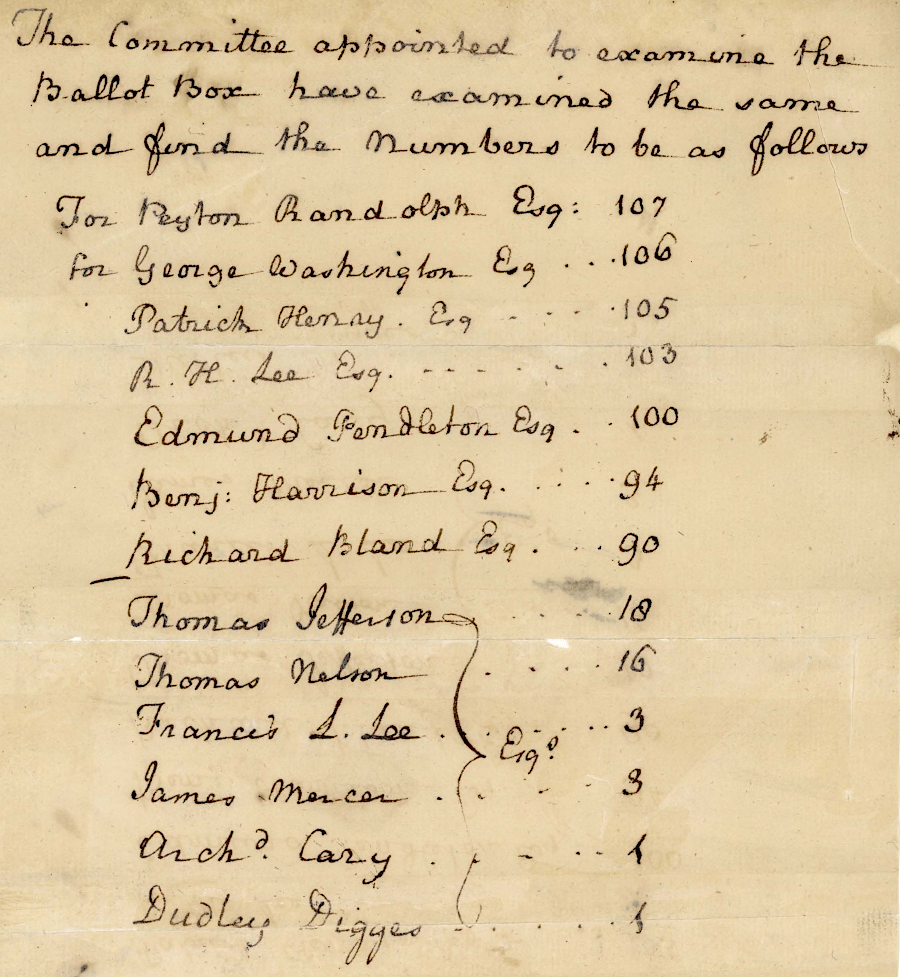 The Committee appointed to examine the
Ballot Box have examined the same
and find the Numbers to be as follows
For Peyton Randolph Esq: 107
for George Washington Esq . . . 106
Patrick Henry . Esq - - - - . 105
R. H. Lee Esq. - - - - - . 103
Edmund Pendleton Esq . . 100
Benj: Harrison Esq. . . . . 94
Richard Bland Esq . . . . 90
Thomas Jefferson . . . . . 18
Thomas Nelson . . . . . 16
Francis L. Lee . . . . . . 3
Esqs.
James Mercer . . - - 3
Archd. Cary . . - . . 1
Dudley Digges . . . . . 1